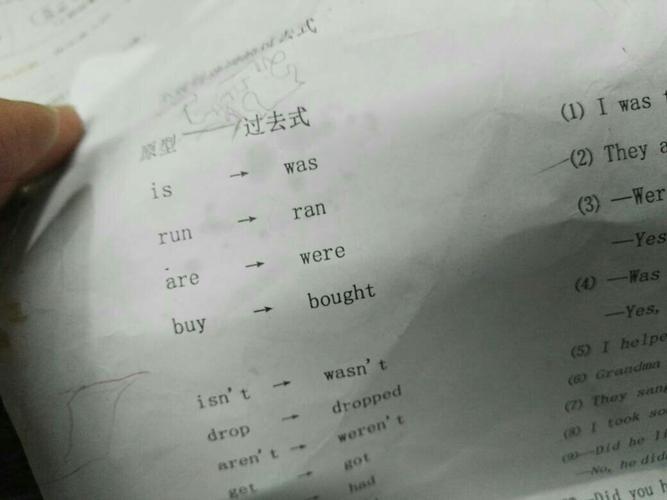 原型——过去式
is → was
run → ran
are → were
buy → bought
isn't → wasn't
drop → dropped
aren't → weren't
get → got
had
(1) I was
(2) They
(3) —Wer
—Yes
(4) —Was
—Yes,
(5) I helpe
(6) Grandma
(7) They sang
(8) I took so
(9)—Did he li
—No, he did
—Did you h